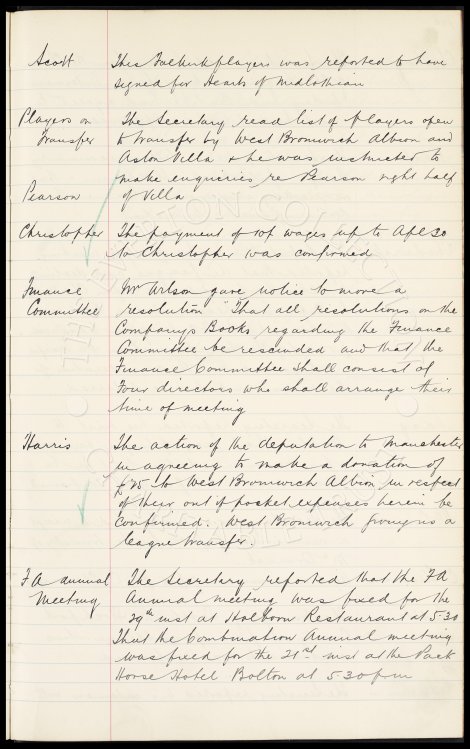 Scott This Falkirk players was reported to have
signed for Hearts of Midlothian
Players on The Secretary read list of players open
Transfer to transfer by West Bromwich Albion and
Aston Villa & he was instructed to
make enquiries re Pearson right half
Pearson of Villa
Christopher The payment of top wages up to Apl 30
to Christopher was confirmed
Finance Mr Wilson gave notice to move a
Committee resolution "That all resolutions on the
Companys Books regarding the Finance
Committee be rescinded and that the
Finance Committee shall consist of
Four directors who shall arrange their
time of meeting
Harris The action of the deputation to Manchester
in agreeing to make a donation of
£25 to West Bromwich Albion in respect
of their out of pocket expenses herein be
confirmed. West Bromwich giving us a
league transfer.
FA annual The Secretary reported that the FA
Meeting Annual meeting was fixed for the
29th inst at Holborn Restaurant at 5.30
That the Combination Annual meeting
was fixed for the 21st inst at the Pack
Horse Hotel Bolton at 5.30 pm
THE EVERTON COLLECTION